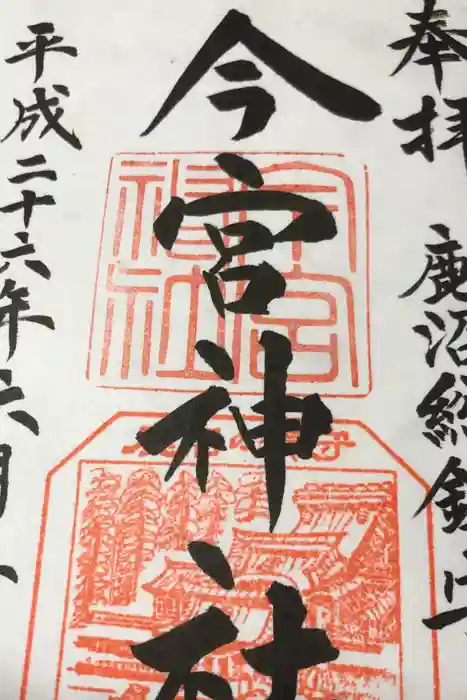 奉拝 鹿沼総鎮守
今宮神社
平成二十六年六月八
今宮神社